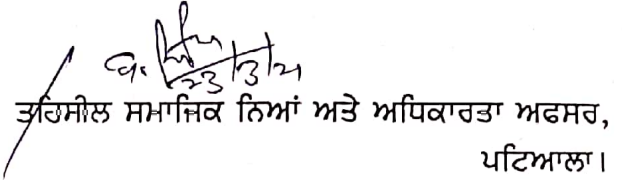 ਤਹਿਸੀਲ ਸਮਾਜਿਕ ਨਿਆਂ ਅਤੇ ਅਧਿਕਾਰਤਾ ਅਫਸਰ,
ਪਟਿਆਲਾ।